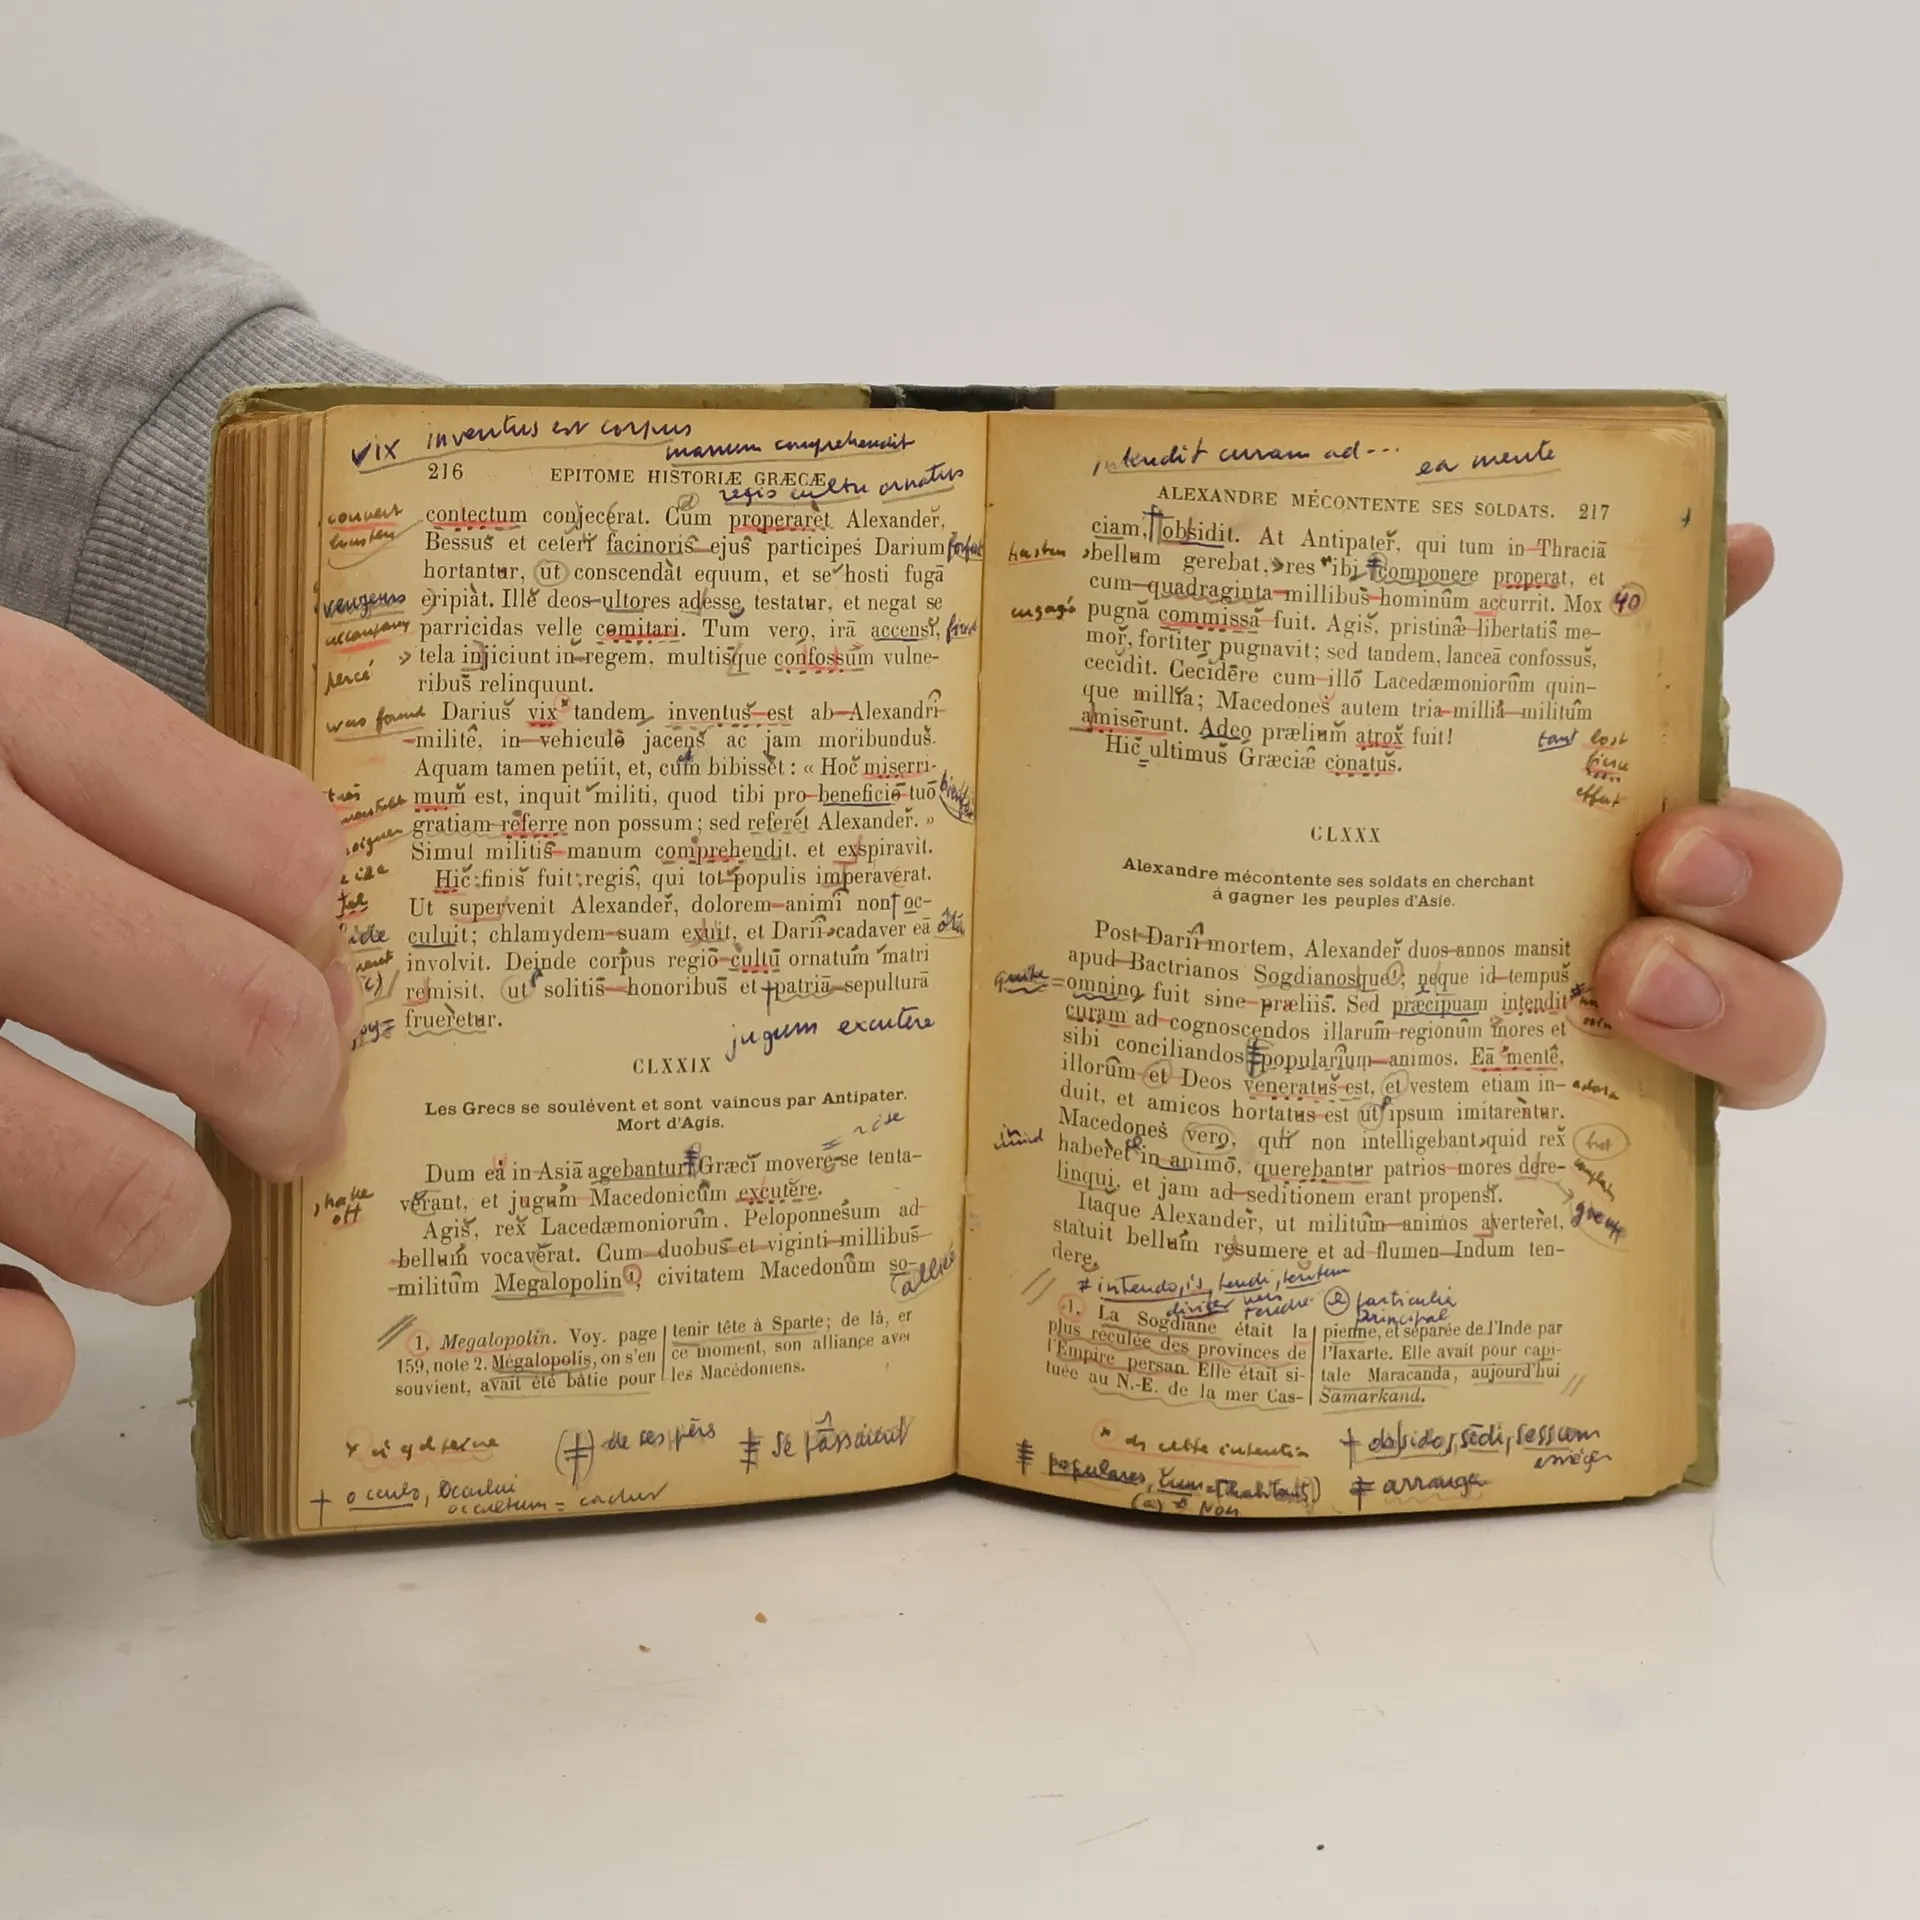 vix inventus est corpus
manum comprehendit
216 EPITOME HISTORIÆ GRÆCÆ
regis cultu ornatus
contectum conjecerat. Cum properaret Alexander,
Bessus et ceteri facinoris ejus participes Darium
hortantur, ut conscendat equum, et se hosti fugā
eripiat. Ille deos ultores adesse testatur, et negat se
parricidas velle comitari. Tum vero, irā accensi,
tela injiciunt in regem, multisque confossum vulne-
ribus relinquunt.
Darius vix tandem inventus est ab Alexandri
milite, in vehiculo jacens ac jam moribundus.
Aquam tamen petiit, et, cum bibisset : « Hoc miserri-
mum est, inquit militi, quod tibi pro beneficio tuo
gratiam referre non possum ; sed referet Alexander. »
Simul militis manum comprehendit, et exspiravit.
Hic finis fuit regis, qui tot populis imperaverat.
Ut supervenit Alexander, dolorem animi non oc-
culuit ; chlamydem suam exuit, et Darii cadaver eā
involvit. Deinde corpus regio cultu ornatum matri
remisit, ut solitis honoribus et patriā sepulturā
frueretur.
jugum excutere
CLXXIX
Les Grecs se soulèvent et sont vaincus par Antipater.
Mort d'Agis.
Dum ea in Asiā agebantur Græci movere se tenta-
verant, et jugum Macedonicum excutere.
Agis, rex Lacedæmoniorum. Peloponnesum ad
bellum vocaverat. Cum duobus et viginti millibus
militum Megalopolin 1, civitatem Macedonum so-
1. Megalopolin. Voy. page
159, note 2. Mégalopolis, on s'en
souvient, avait été bâtie pour
tenir tête à Sparte ; de là, er
ce moment, son alliance avec
les Macédoniens.
couvert
vengeurs
accompany
percé
was found
shake
off
allié
de ses pères
se passaient
occulo, occului
occultum = cacher
intendit curam ad ...
ea mente
ALEXANDRE MÉCONTENTE SES SOLDATS. 217
ciam, obsidit. At Antipater, qui tum in Thraciā
bellum gerebat, res ibi componere properat, et
cum quadraginta millibus hominum accurrit. Mox
pugna commissa fuit. Agis, pristinæ libertatis me-
mor, fortiter pugnavit ; sed tandem, lanceā confossus,
cecidit. Cecidere cum illo Lacedæmoniorum quin-
que millia ; Macedones autem tria millia militum
amiserunt. Adeo prælium atrox fuit !
Hic ultimus Græciæ conatus.
hasten
engagé
40
tant
lost
fierce
effort
CLXXX
Alexandre mécontente ses soldats en cherchant
à gagner les peuples d'Asie.
Post Darii mortem, Alexander duos annos mansit
apud Bactrianos Sogdianosque 1 ; neque id tempus
omnino fuit sine præliis. Sed præcipuam intendit
curam ad cognoscendos illarum regionum mores et
sibi conciliandos popularium animos. Eā mente,
illorum et Deos veneratus est, et vestem etiam in-
duit, et amicos hortatus est ut ipsum imitarentur.
Macedones vero, qui non intelligebant quid rex
haberet in animo, querebantur patrios mores dere-
linqui, et jam ad seditionem erant propensi.
Itaque Alexander, ut militum animos averteret,
statuit bellum resumere et ad flumen Indum ten-
dere.
quite
mind
adora
but
complain
intendo, is, tendi, tentum
particulier
principal
1. La Sogdiane était la
plus reculée des provinces de
l'Empire persan. Elle était si-
tuée au N.-E. de la mer Cas-
pienne, et séparée de l'Inde par
l'Iaxarte. Elle avait pour capi-
tale Maracanda, aujourd'hui
Samarkand.
ds cette intention
obsido, sēdi, sessum
assiéger
populares, ium
arranger